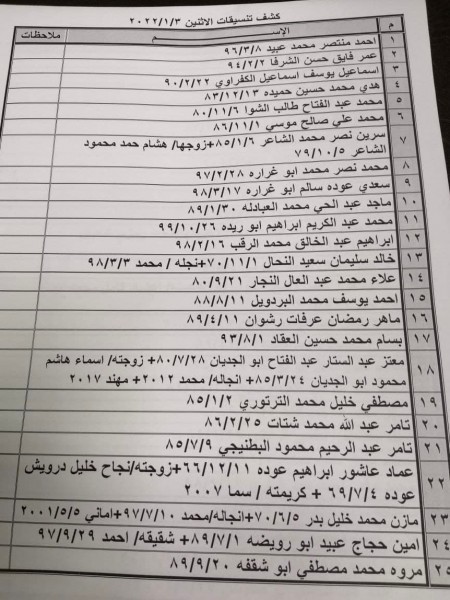 كشف تنسيقات الاثنين ٢٠٢٢/١/٣
م الإســـم ملاحظات
١ احمد منتصر محمد عبيد ٩٦/٣/٨
٢ عمر فايق حسن الشرفا ٩٤/٢/٢
٣ اسماعيل يوسف اسماعيل الكفراوي ٩٠/٢/٢٢
٤ هدي محمد حسين حميده ٨٣/١٢/١٣
٥ محمد عبد الفتاح طالب الشوا ٨٠/١١/٦
٦ محمد علي صالح موسي ٨٦/١١/١
٧ سرين نصر محمد الشاعر ٨٥/١/٦+زوجها/ هشام حمد محمود
الشاعر ٧٩/١٠/٥
٨ محمد نصر محمد ابو غراره ٩٧/٢/٢٨
٩ سعدي عوده سالم ابو غراره ٩٨/٣/١٧
١٠ ماجد عبد الحي محمد العبادله ٨٩/١/٣٠
١١ محمد عبد الكريم ابراهيم ابو ريده ٩٩/١٠/٢٦
١٢ ابراهيم عبد الخالق محمد الرقب ٩٨/٢/١٦
١٣ خالد سليمان سعيد النحال ٧٠/١١/١+نجله / محمد ٩٨/٣/٣
١٤ علاء محمد عبد العال النجار ٨٠/٩/٢١
١٥ احمد يوسف محمد البردويل ٨٨/٨/١١
١٦ ماهر رمضان عرفات رشوان ٨٩/٤/١١
١٧ بسام محمد حسين العقاد ٩٣/٨/١
١٨ معتز عبد الستار عبد الفتاح ابو الجديان ٨٠/٧/٢٨+ زوجته/ اسماء هاشم
محمود ابو الجديان ٨٥/٣/٢٤+ انجاله/ محمد ٢٠١٢+ مهند ٢٠١٧
١٩ مصطفي خليل محمد الترتوري ٨٥/١/٢
٢٠ تامر عبد الله محمد شتات ٨٦/٢/٢٥
٢١ تامر عبد الرحيم محمود البطنيجي ٨٥/٧/٩
٢٢ عماد عاشور ابراهيم عوده ٦٦/١٢/١١+زوجته/نجاح خليل درويش
عوده ٦٩/٧/٤ + كريمته / سما ٢٠٠٧
٢٣ مازن محمد خليل بدر ٧٠/٦/٥+انجاله/محمد ٩٧/٧/١٠+اماني ٢٠٠١/٥/٥
٢٤ امين حجاج عبيد ابو رويضه ٨٩/٧/١+ شقيقه/ احمد ٩٧/٩/٢٩
٢٥ مروه محمد مصطفي ابو شقفه ٨٩/٩/٢٠